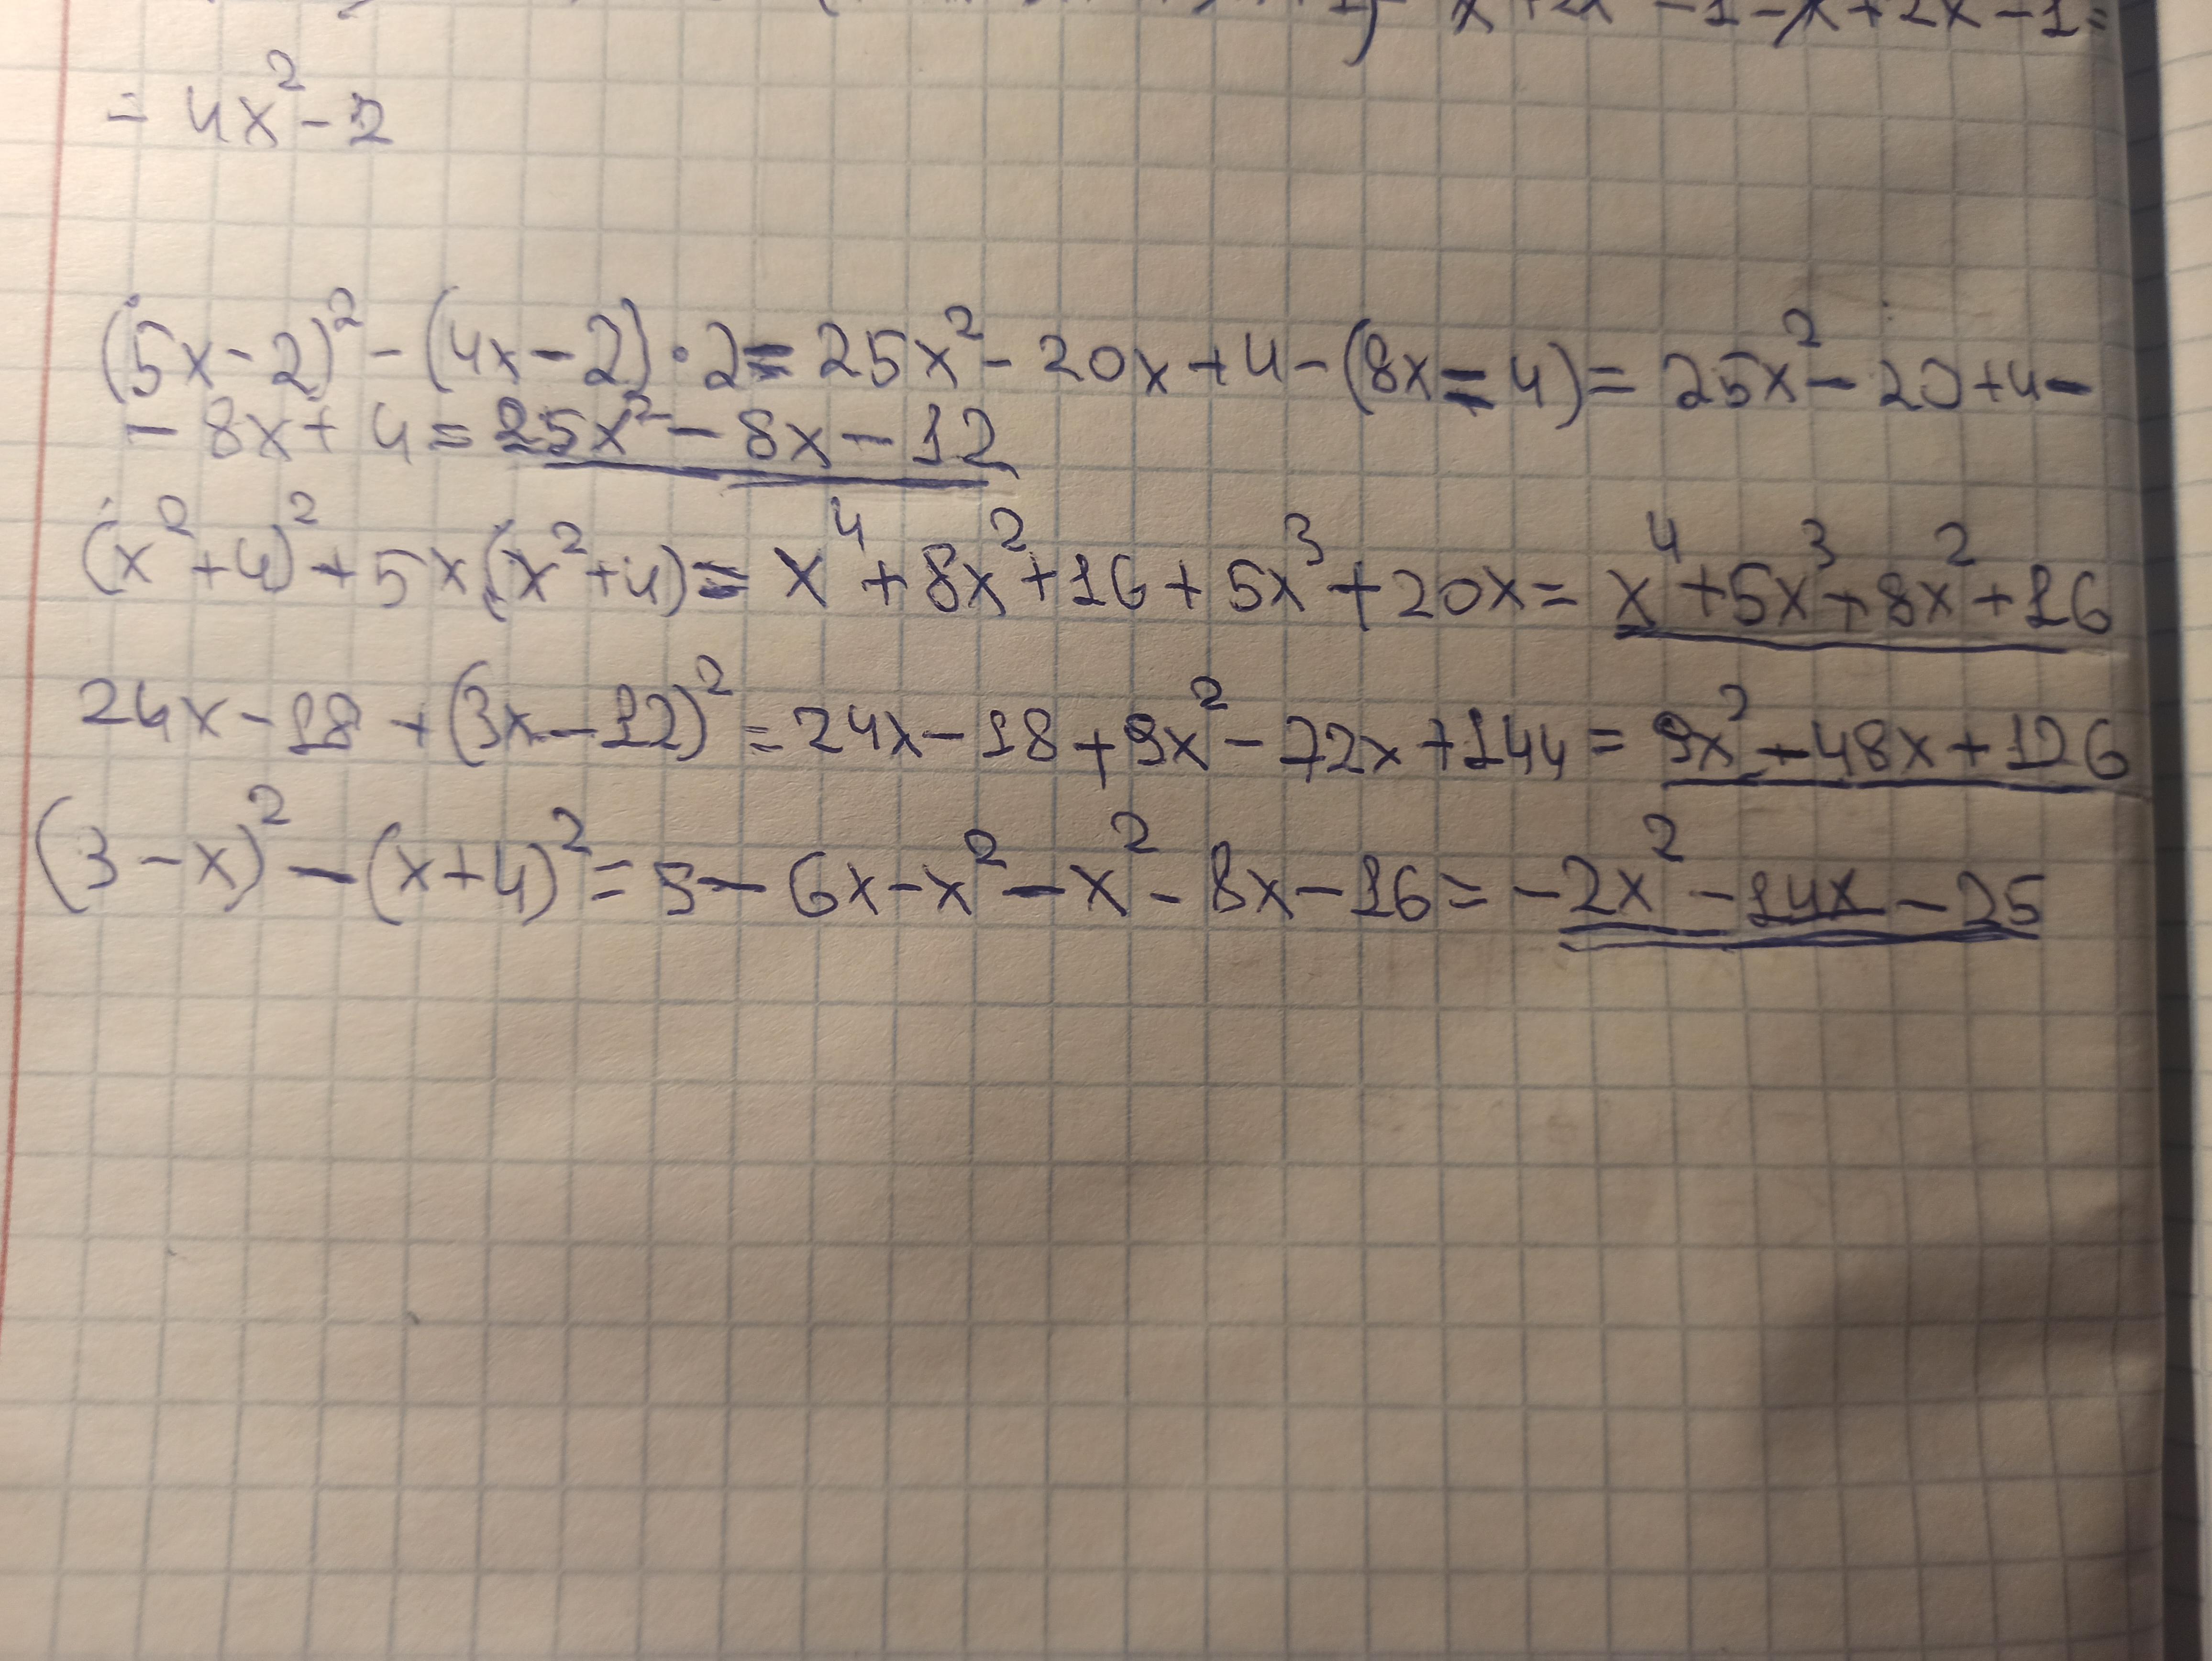 x + 2x - 1 - x + 2x - 1 =
= 4x² - 2
(5x - 2)² - (4x - 2) · 2 = 25x² - 20x + 4 - (8x - 4) = 25x² - 20 + 4 -
- 8x + 4 = 25x² - 8x - 12
(x² + 4)² + 5x(x² + 4) = x⁴ + 8x² + 16 + 5x³ + 20x = x⁴ + 5x³ + 8x² + 16
24x - 18 + (3x - 12)² = 24x - 18 + 9x² - 72x + 144 = 9x² - 48x + 126
(3 - x)² - (x + 4)² = 9 - 6x - x² - x² - 8x - 16 = -2x² - 14x - 25